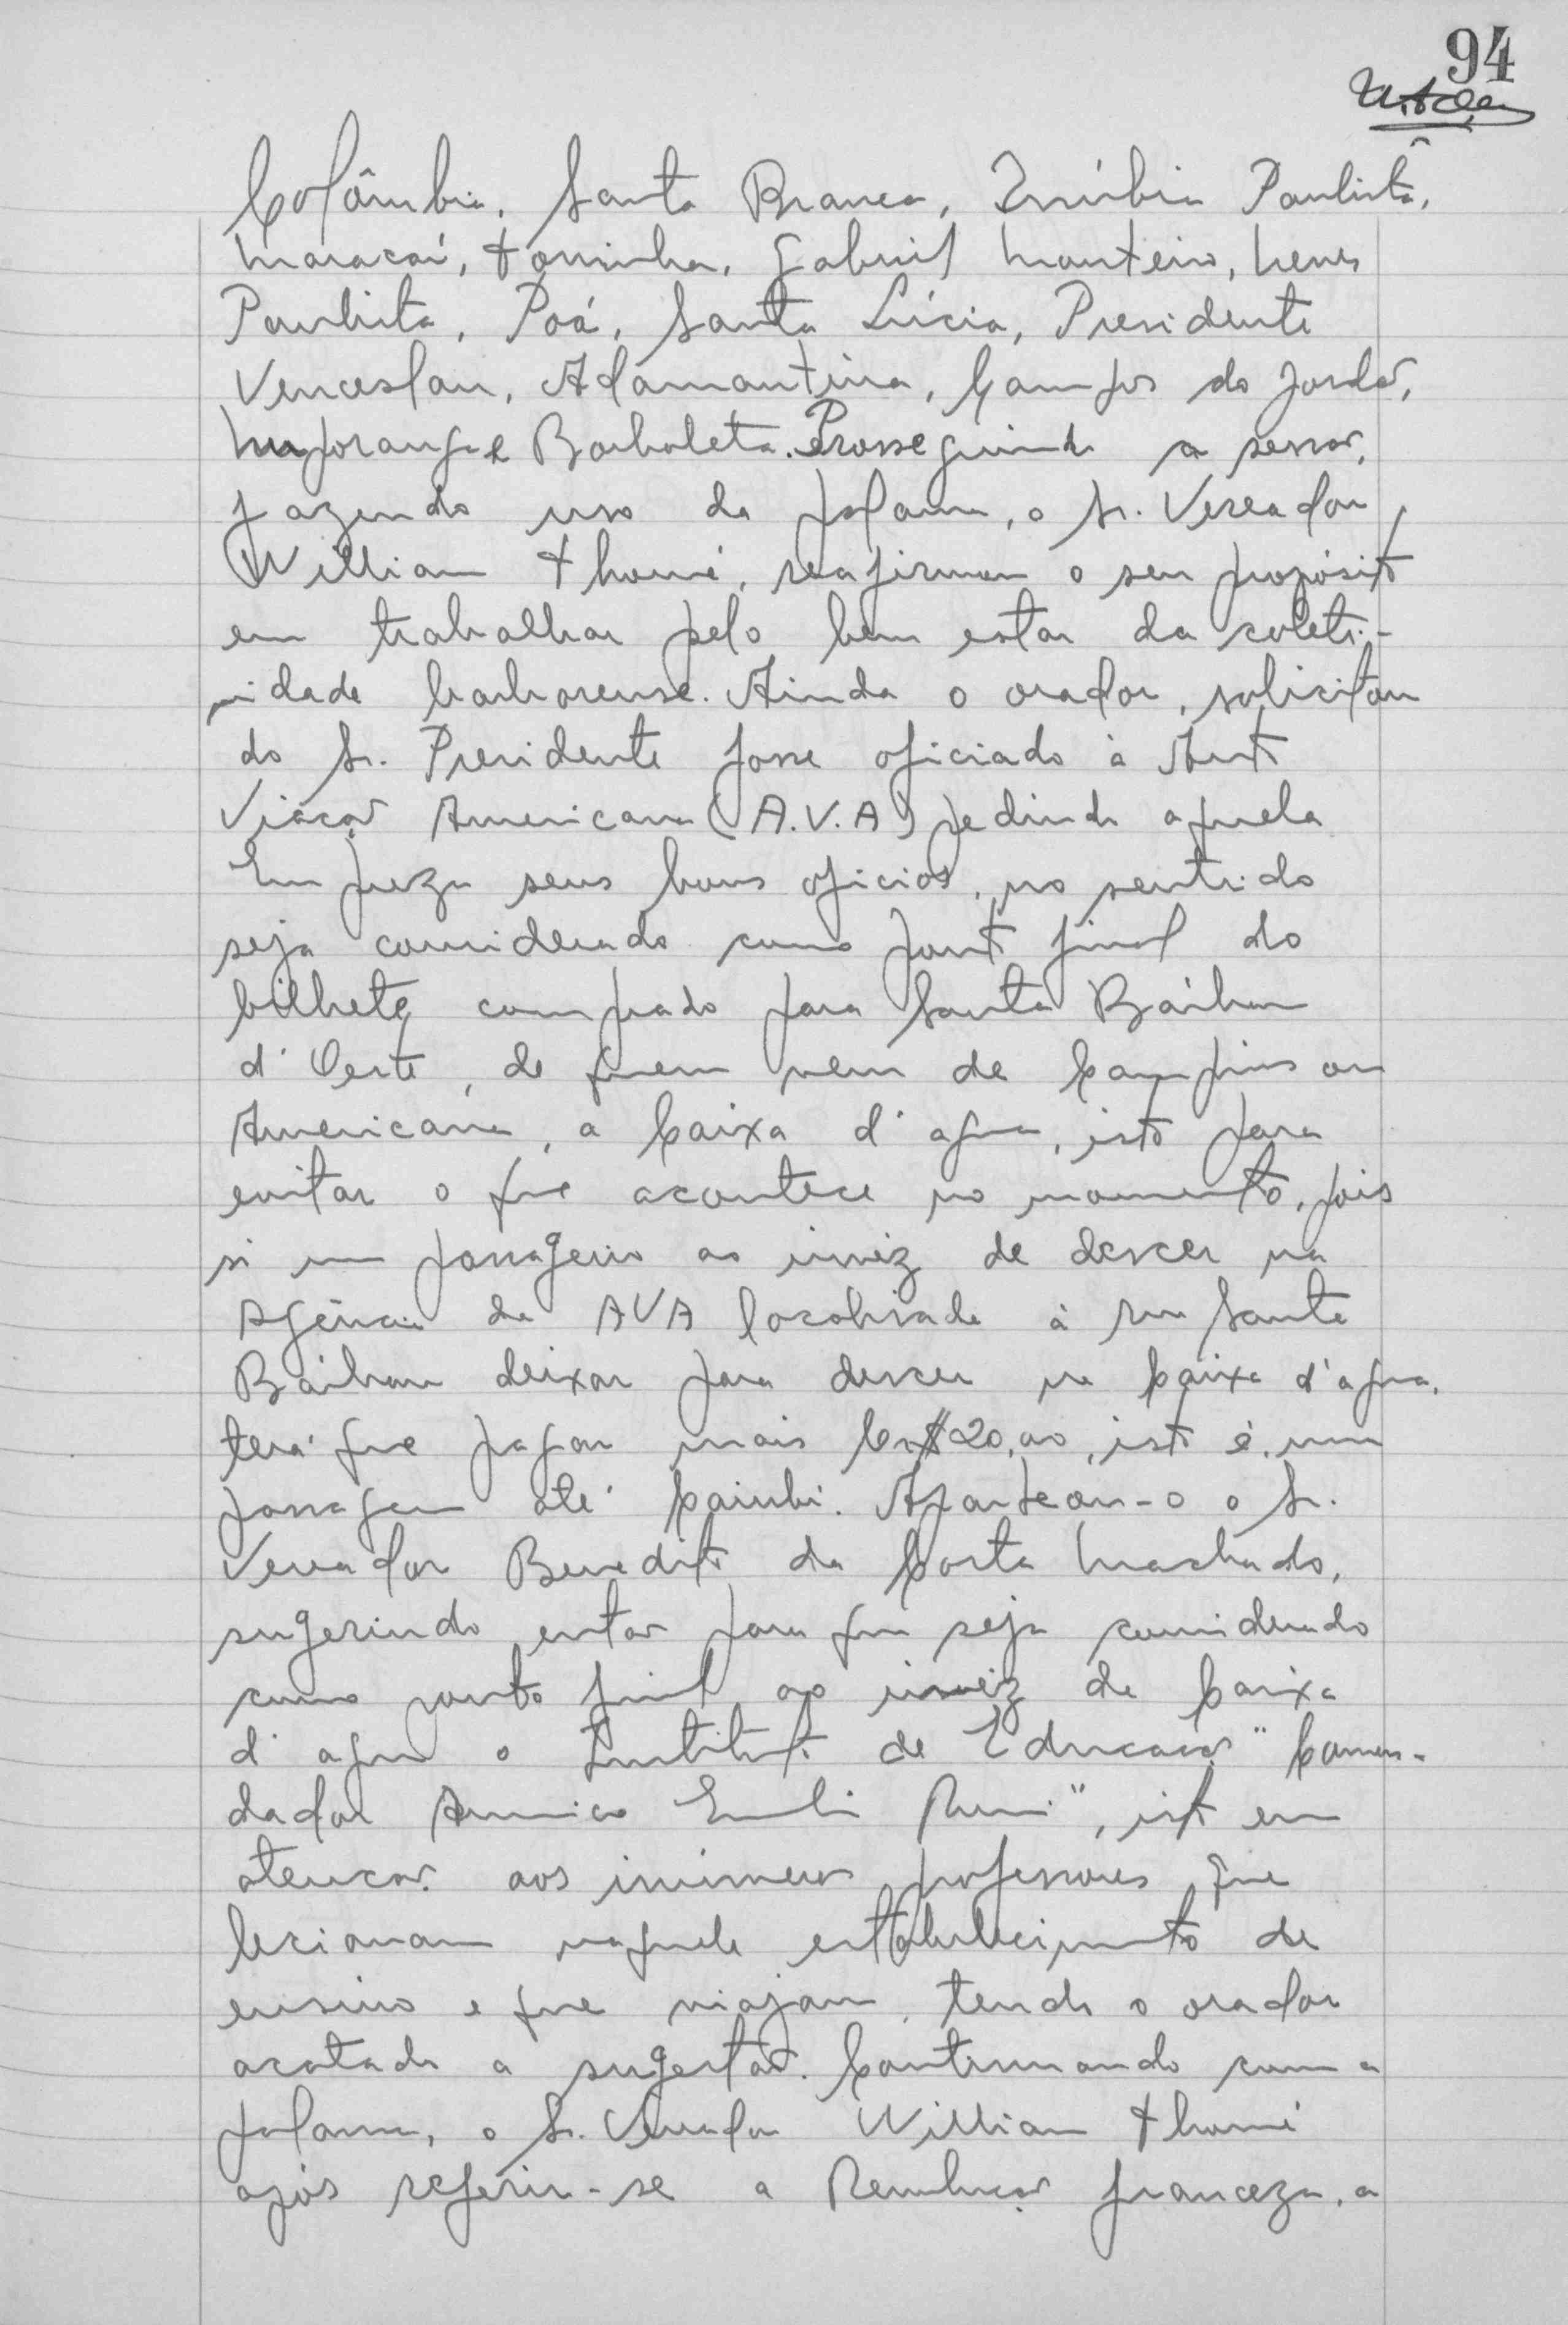 94
Colômbia, Santa Branca, Inúbia Paulista,
Maracaí, Torrinha, Gabriel Monteiro, Neves
Paulista, Poá, Santa Lúcia, Presidente
Venceslau, Adamantina, Campos do Jordão,
e Borboleta. Prosseguindo a sessão,
fazendo uso da palavra, o Sr. Vereador
Willian Thomé, reafirmou o seu propósito
em trabalhar pelo bem estar da coleti-
vidade barbarense. Ainda o orador, solicitou
do Sr. Presidente fosse oficiado à Auto
Viação Americana (A.V.A) pedindo aquela
Empreza seus bons oficios, no sentido
seja considerado como ponto final do
bilhete comprado para Santa Bárbara
d'Oeste, de quem vem de Campinas ou
Americana, a Caixa d'agua, isto para
evitar o que acontece no momento, pois
si um passageiro ao invéz de descer na
Agência da AVA localisada à rua Santa
Bárbara deixar para descer na Caixa d'agua,
terá que pagar mais Cr$20,00, isto é, uma
passagem até Caiubi. Aparteou-o o Sr.
Vereador Benedito da Costa Machado,
sugerindo então para que seja considerado
como ponto final ao invéz da Caixa
d'agua o Instituto de Educação "Comen-
dador Americo Emilio Romi", isto em
atenção aos inúmeros professores que
lecionam naquele estabelecimento de
ensino e que viajam, tendo o orador
acatado a sugestão. Continuando com a
palavra, o Sr. Vereador Willian Thomé
após referir-se a Revolução franceza, a